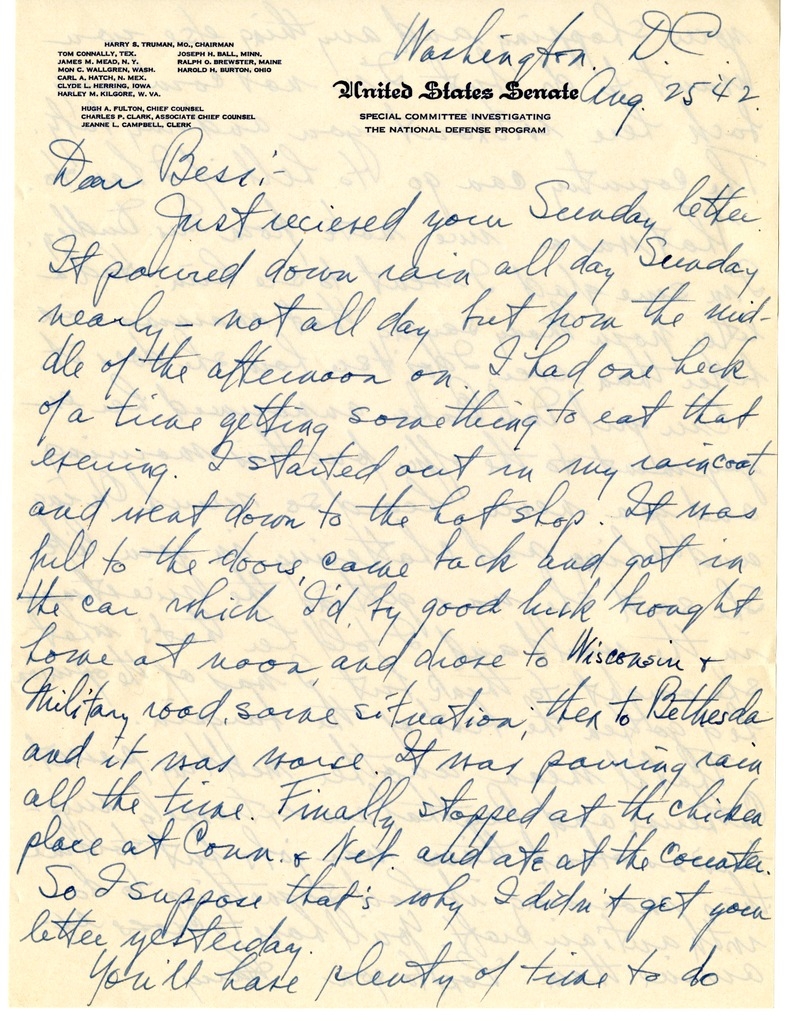 HARRY S. TRUMAN, MO., CHAIRMAN
TOM CONNALLY, TEX. JOSEPH H. BALL, MINN.
JAMES M. MEAD, N. Y. RALPH O. BREWSTER, MAINE
MON C. WALLGREN, WASH. HAROLD H. BURTON, OHIO
CARL A. HATCH, N. MEX.
CLYDE L. HERRING, IOWA
HARLEY M. KILGORE, W. VA.
HUGH A. FULTON, CHIEF COUNSEL
CHARLES P. CLARK, ASSOCIATE CHIEF COUNSEL
JEANNE L. CAMPBELL, CLERK
Washington, D.C.
United States Senate Aug. 25 '42.
SPECIAL COMMITTEE INVESTIGATING
THE NATIONAL DEFENSE PROGRAM
Dear Bess:-
Just recieved your Sunday letter.
It poured down rain all day Sunday
nearly - not all day but from the mid-
dle of the afternoon on. I had one heck
of a time getting something to eat that
evening. I started out in my raincoat
and went down to the hot shop. It was
full to the doors, came back and got in
the car which I'd, by good luck brought
home at noon, and drove to Wisconsin &
Military road, same situation; then to Bethesda
and it was worse. It was pouring rain
all the time. Finally stopped at the chicken
place at Conn. & Neb. and ate at the counter.
So I suppose that's why I didn't get your
letter yesterday.
You'll have plenty of time to do